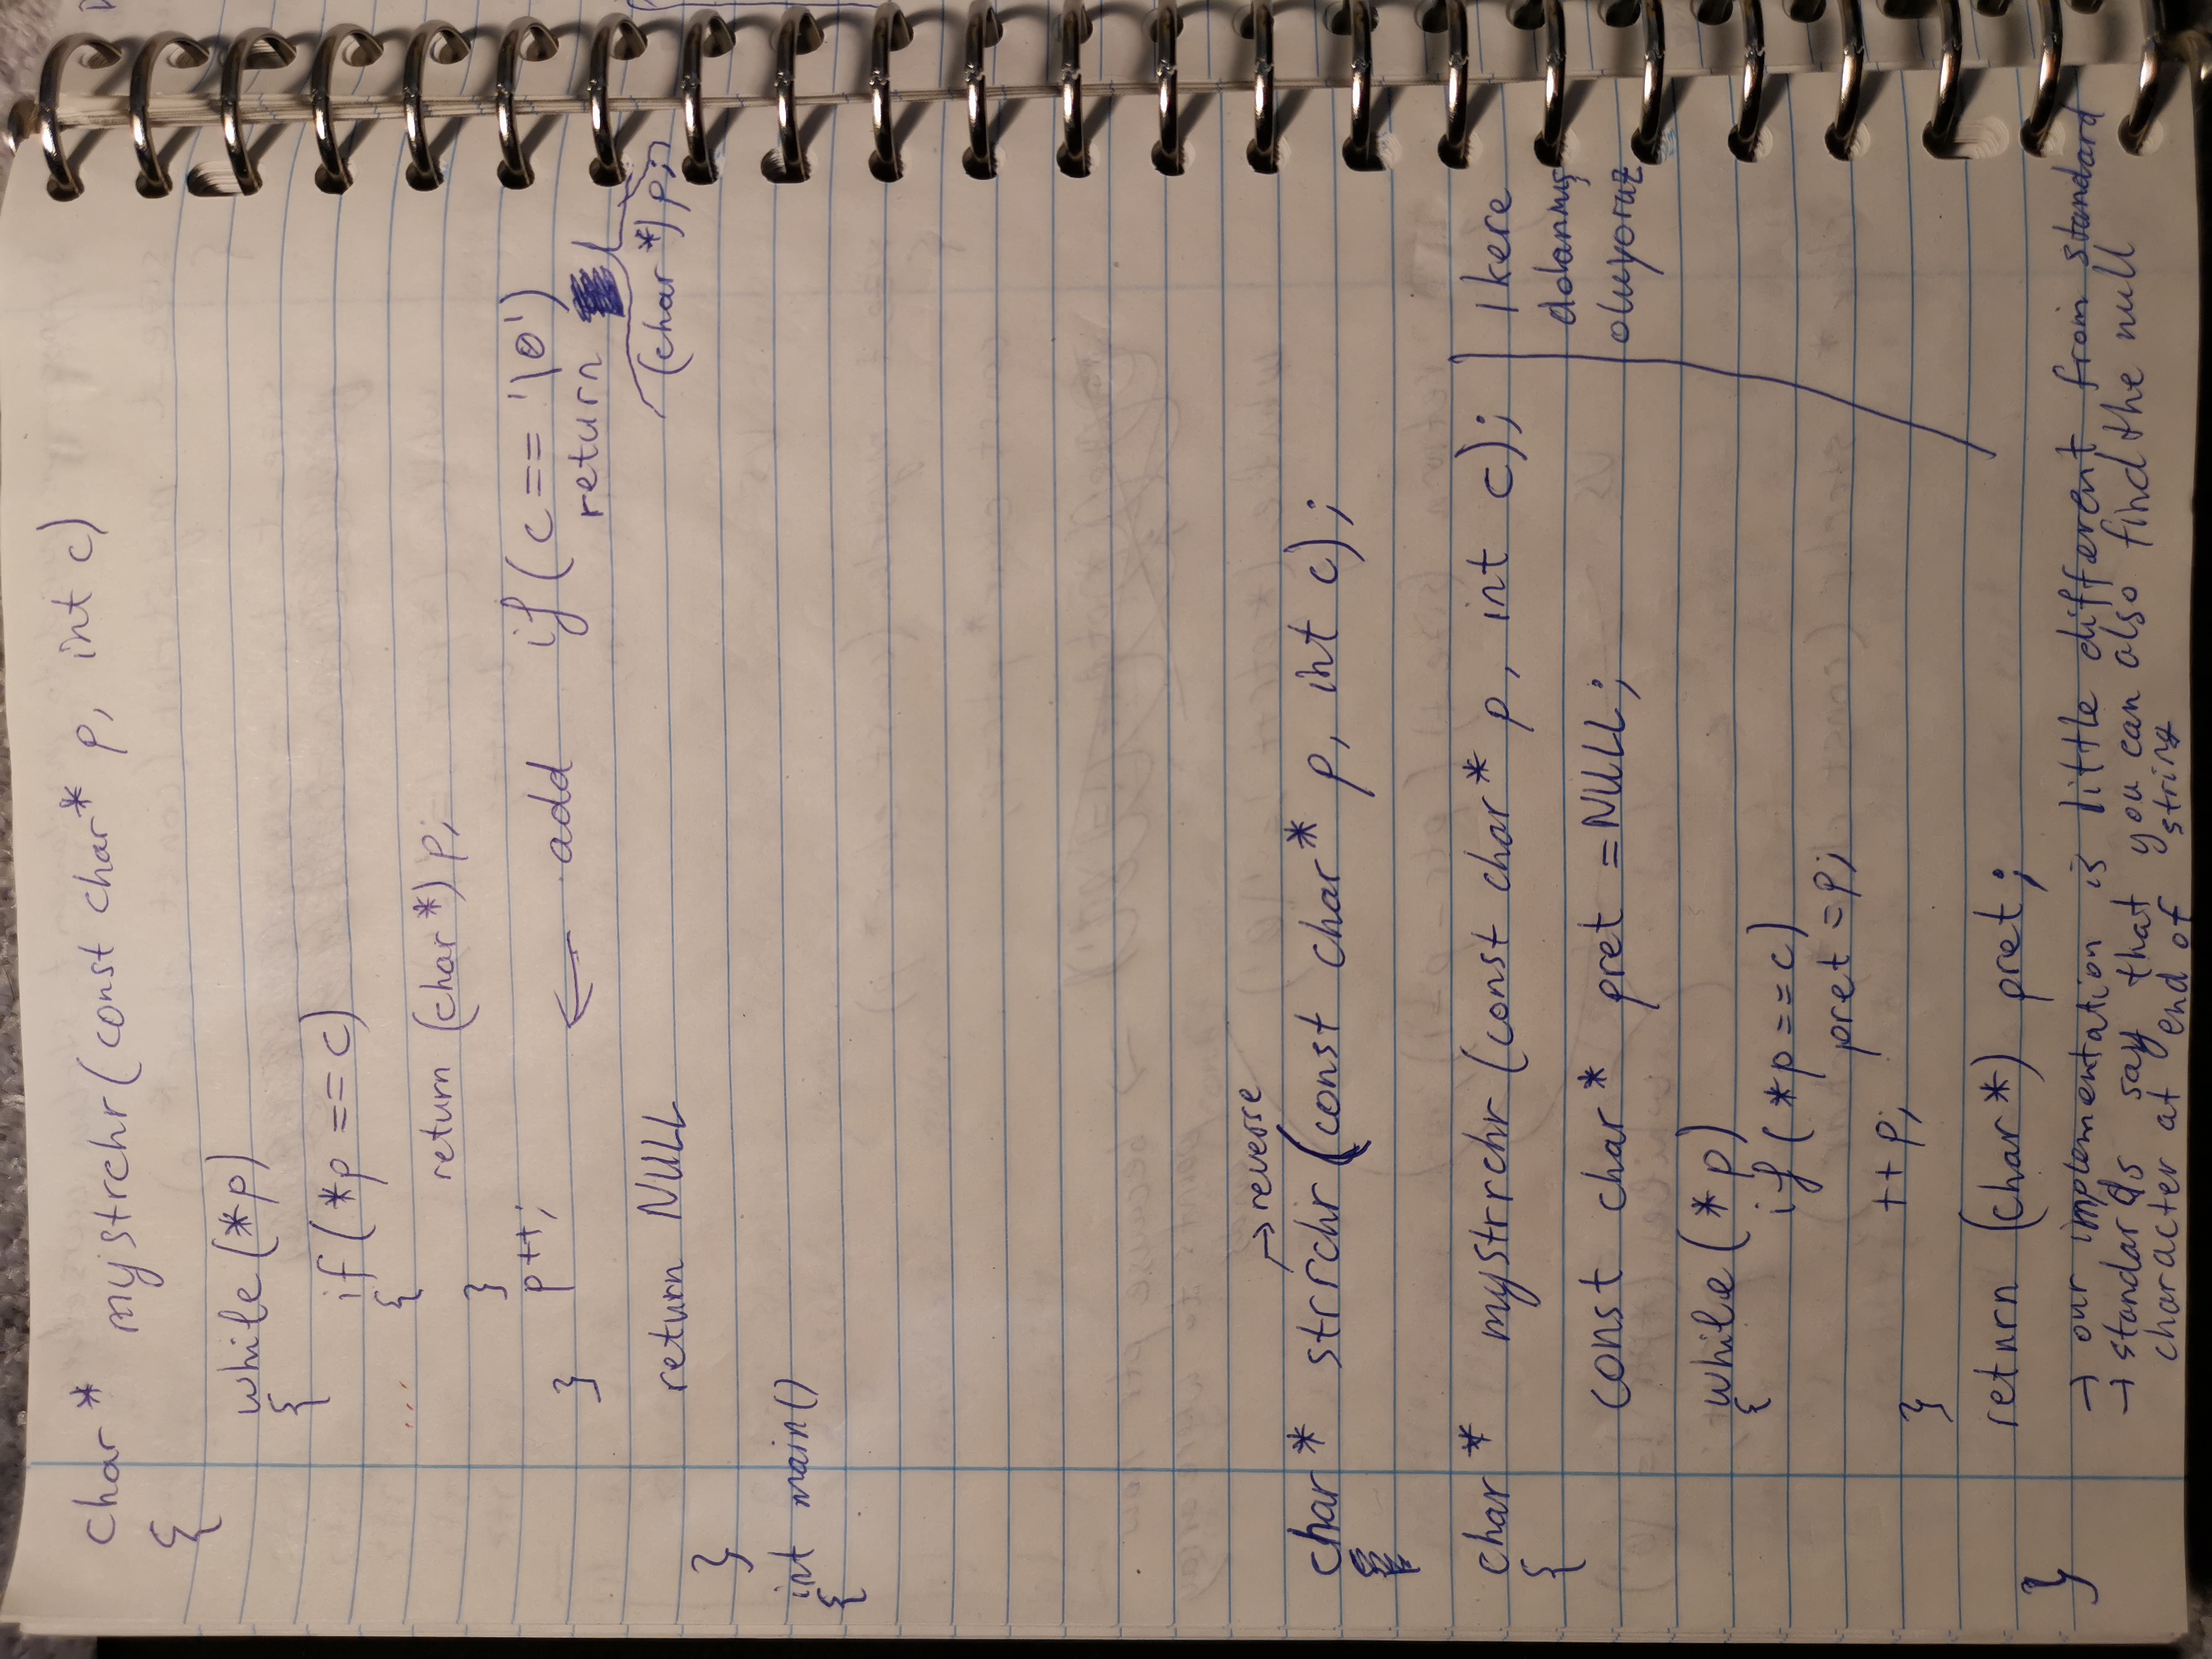 char * mystrchr(const char* p, int c)
{
while (*p)
{
if (*p == c)
{
return (char*) p;
}
p++;
} ← add if (c == '\0')
return
(char*) p;
return NULL
}
int main()
{
→ reverse
char * strrchr (const char* p, int c);
char * mystrrchr (const char* p, int c);
{
const char* pret = NULL;
while (*p)
{
if (*p==c)
pret = p;
++p;
}
return (char*) pret;
}
1 kere
dolanmış
oluyoruz
→ our implementation is little different from standard
→ standards say that you can also find the null
character at end of string